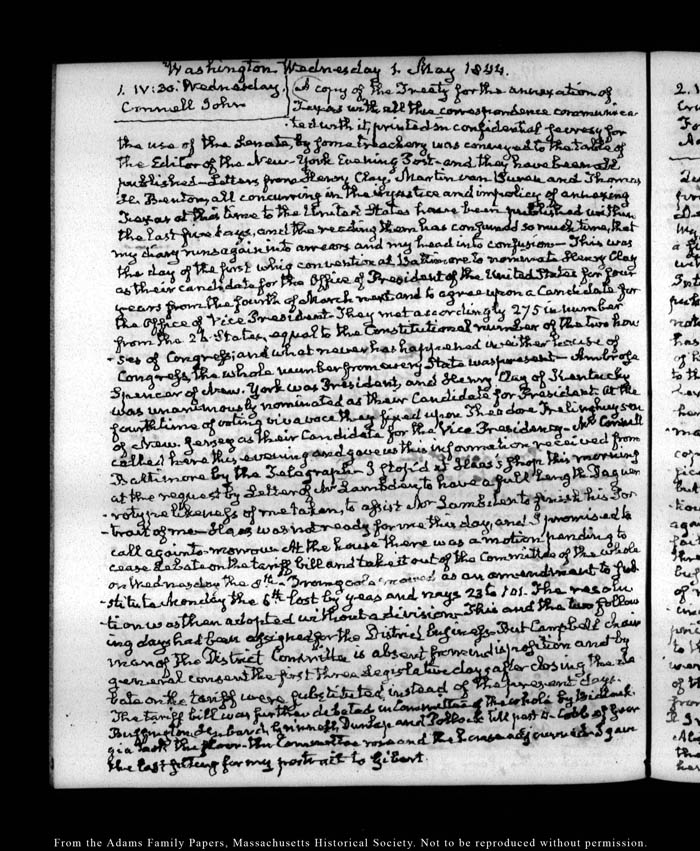 Washington Wednesday 1. May 1844.
1. IV:30. Wednesday.
Connell John
A copy of the Treaty for the annexation of
Texas with all the correspondence communica-
-ted with it, printed in confidential secresy for
the use of the Senate, by some treachery was conveyed to the table of
the Editor of the New-York Evening Post- and they have been all
published- Letters from Henry Clay, Martin van Buren and Thomas
H. Benton, all concurring in the injustice and impolicy of annexing
Texas at this time to the United States have been published within
the last five days, and the reading them has consumed so much time, that
my diary runs again into arrears and my head into confusion- This was
the day of the first whig convention at Baltimore to nominate Henry Clay
as their candidate for the Office of President of the United States for four
years from the fourth of March next and to agree upon a Candidate for
the Office of Vice President- They met accordingly 275 in number
from the 26 States, equal to the Constitutional number of the two hou
-ses of Congress; and what never has happened in either house of
Congress, the whole number from every State was present- Ambrose
Spencer of New-York was President, and Henry Clay of Kentucky
was unanimously nominated as their Candidate for President- At the
fourth time of voting viva voce they fixed upon Theodore Frelinghuysen
of New-Jersey as their Candidate for the Vice Presidency- Mr Connell
called here this evening and gave us this information received from
Baltimore by the Telegraph- I stop'd at Haas's shop this morning
at the request by Letter of Mr Lambdin, to have a full length Daguer
-rotype likeness of me taken, to assist Mr Lambdin to finish his Por
-trait of me- Haas was not ready for me this day, and I promised to
call again to-morrow- At the house there was a motion pending to
cease debate on the tariff bill and take it out of the Committee of the whole
on Wednesday the 8th- Dromgoole moved as an amendment to sub
-stitute Monday the 6th lost by yeas and nays 23 to 101. The resolu
-tion was then adopted without a division- This and the two follow
ing days had been assigned for the District business- But Campbell chair
man of the District Committee is absent from indisposition and by
general consent the first three Legislative days after closing the de
bate on the tariff were substituted instead of the present days.
The tariff bill was further debated in Committee of the whole by Bidlack.
Buffington, Hubard, Grinnell, Dunlap and Pollock till past 4- Cobb of Geor
gia took the floor- the Committee rose and the house adjourned- I gave
the last sitting for my portrait to Gibert
From the Adams Family Papers, Massachusetts Historical Society. Not to be reproduced without permission.